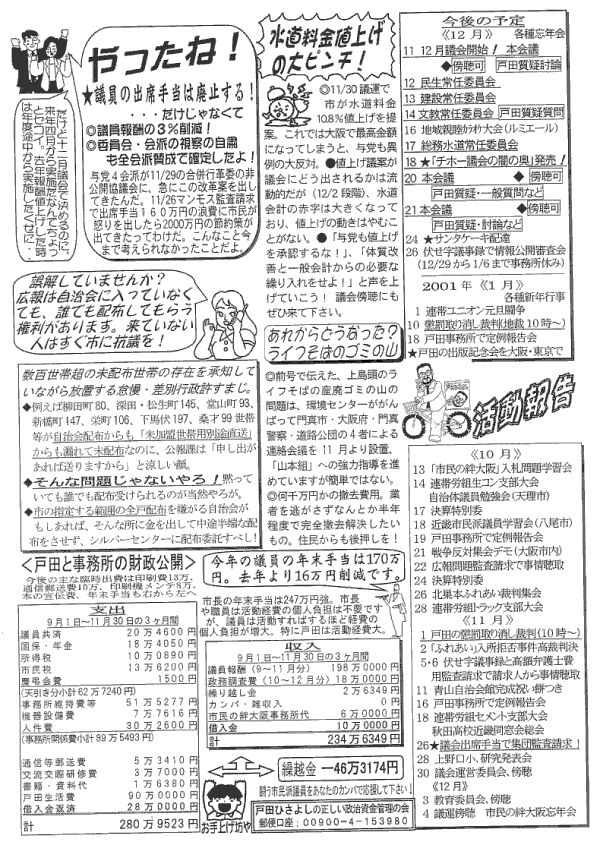 やったね！
★議員の出席手当は廃止する！
・・・だけじゃなくて
◎議員報酬の３％削減！
◎委員会・会派の視察の自粛
も全会派賛成で確定したよ！
与党４会派が11/29の合併行革委の非
公開協議会に、急にこの改革案を出し
てきたんだ。11/26マンモス監査請求
で出席手当１６０万円の浪費に市民が
怒りを出したら2000万円の節約策が
出てきたってわけだ。こんなこと今
まで考えられなかったことだよ。
だけど十二月議会で決めるのに、
来年四月から実施だなんてちょっ
とセコイ。去年報酬値上げした時
は年度途中から実施したくせに・
水道料金値上げ
の大ピンチ！
◎11/30議運で
市が水道料金
10.8%値上げを提
案。これでは大阪で最高金額
になってしまうと、与党も異
例の大反対。●値上げ議案が
議会にどう出されるかは流
動的だが（12/2段階）、水道
会計の赤字は大きくなって
おり、値上げの動きはやむこ
とがない。●「与党も値上げ
を承認するな！」、「体質改
善と一般会計からの必要な
繰り入れをせよ！」と声を上
げていこう！ 議会傍聴にも
ぜひ来て下さい。
今後の予定
《12月》 各種忘年会
11 12月議会開始！ 本会議
◆傍聴可 戸田質疑討論
12 民生常任委員会
13 建設常任委員会
14 文教常任委員会 戸田質疑質問
16 地域親睦カラオケ大会（ルミエール）
17 総務水道常任委員会
18 ★「チホー議会の闇の奥」発売！
20 本会議 ◆傍聴可
戸田質疑・一般質問など
21 本会議 ◆傍聴可
戸田質疑・討論など
24 ★サンタケーキ配達
26 伏せ字議事録で情報公開審査会
（12/29から1/6まで事務所休み）
2001年《１月》
各種新年行事
1 連帯ユニオン元旦闘争
10 懲罰取り消し裁判（地裁10時〜）
18 戸田事務所で定例報告会
★戸田の出版記念会を大阪・東京で
誤解していませんか？
広報は自治会に入っていなく
ても、誰でも配布してもらう
権利があります。来ていない
人はすぐ市に抗議を！
数百世帯超の未配布世帯の存在を承知して
いながら放置する怠慢・差別行政許すまじ。
◆例えば柳田町80、深田・松生町145、堂山町93、
新橋町147、栄町106、下馬伏197、桑才99世帯
等が自治会配布からも「未加盟世帯用別途直送」
からも漏れて未配布なのに、公報課は「申し出が
あれば送りますから」と涼しい顔。
◆そんな問題じゃないやろ！黙って
いても誰でも配布受けられるのが当然やろが。
◆市の指定する範囲の全戸配布を嫌がる自治会が
もしあれば、そんな所に金を出して中途半端な配
布をさせず、シルバーセンターに配布委託すべし！
あれからどうなった？
ライフそばのゴミの山
◎前号で伝えた、上島頭のラ
イフそばの産廃ゴミの山の
問題は、環境センターががん
ばって門真市・大阪府・門真
警察・道路公団の４者による
連絡会議を 11 月より設置、
「山本組」への強力指導を進
めていますが簡単ではない。
◎何千万かの撤去費用。業
者を逃がさずなんとか半年
程度で完全撤去解決したい
もの。住民からも後押しを！
活動報告
《10月》
13 「市民の絆大阪」入札問題学習会
14 連帯労組生コン支部大会
自治体議員勉強会（天理市）
17 決算特別委
18 近畿市民派議員学習会（八尾市）
19 戸田事務所で定例報告会
21 戦争反対集会デモ（大阪市内）
22 広報問題監査請求で事情聴取
24 決算特別委
26 北巣本ふれあい裁判集会
28 連帯労組トラック支部大会
《11月》
1 戸田の懲罰取り消し裁判（10時〜）
2 「ふれあい」入所拒否事件高裁判決
5・6 伏せ字議事録と高額弁護士費
用監査請求で請求人から事情聴取
11 青山自治会館完成祝い餅つき
16 戸田事務所で定例報告会
18 連帯労組セメント支部大会
秋田高校近畿同窓会総会
26 ★議会出席手当で集団監査請求！
28 上野口小、研究発表会
30 議会運営委員会、傍聴
《12月》
3 教育委員会、傍聴
4 議運傍聴 市民の絆大阪忘年会
＜戸田と事務所の財政公開＞
今後の主な臨時出費は印刷費13万、
通信郵送費10万、印刷機メンテ8万、
本の宣伝費、年末手当も右から左へ
支出
９月１日〜11月30日の３ヶ月間
議員共済 20万4600円
国保・年金 18万4050円
所得税 10万0890円
市民税 13万6200円
慶弔会費 1500円
（天引き分小計62万7240円）
事務所維持費等 51万5277円
機器設備費 7万7616円
人件費 30万2600円
（事務所関係費小計89万5493円）
通信等郵送費 5万3410円
交流交際研修費 3万7000円
書籍・資料代 1万6380円
戸田生活費 90万0000円
借入金返済 28万0000円
計 280万9523円
今年の議員の年末手当は170万
円。去年より16万円削減です。
市長の年末手当は247万円強。市長
や職員は活動経費の個人負担は不要です
が、議員は活動すればするほど経費の
個人負担が増大。特に戸田は活動経費大。
収入
９月１日〜11月30日の３ヶ月間
議員報酬（９〜11月分） 198万0000円
政務調査費（10〜12月分）18万0000円
繰り越し金 2万6349円
カンパ・雑収入 0円
市民の絆大阪事務所代 6万0000円
借入金 10万0000円
計 234万6349円
繰越金 －46万3174円
闘う市民派議員をあなたのカンパで応援して下さい！
お手上げ坊や
戸田ひさよしの正しい政治資金管理の会
郵便口座：00900-4-153980